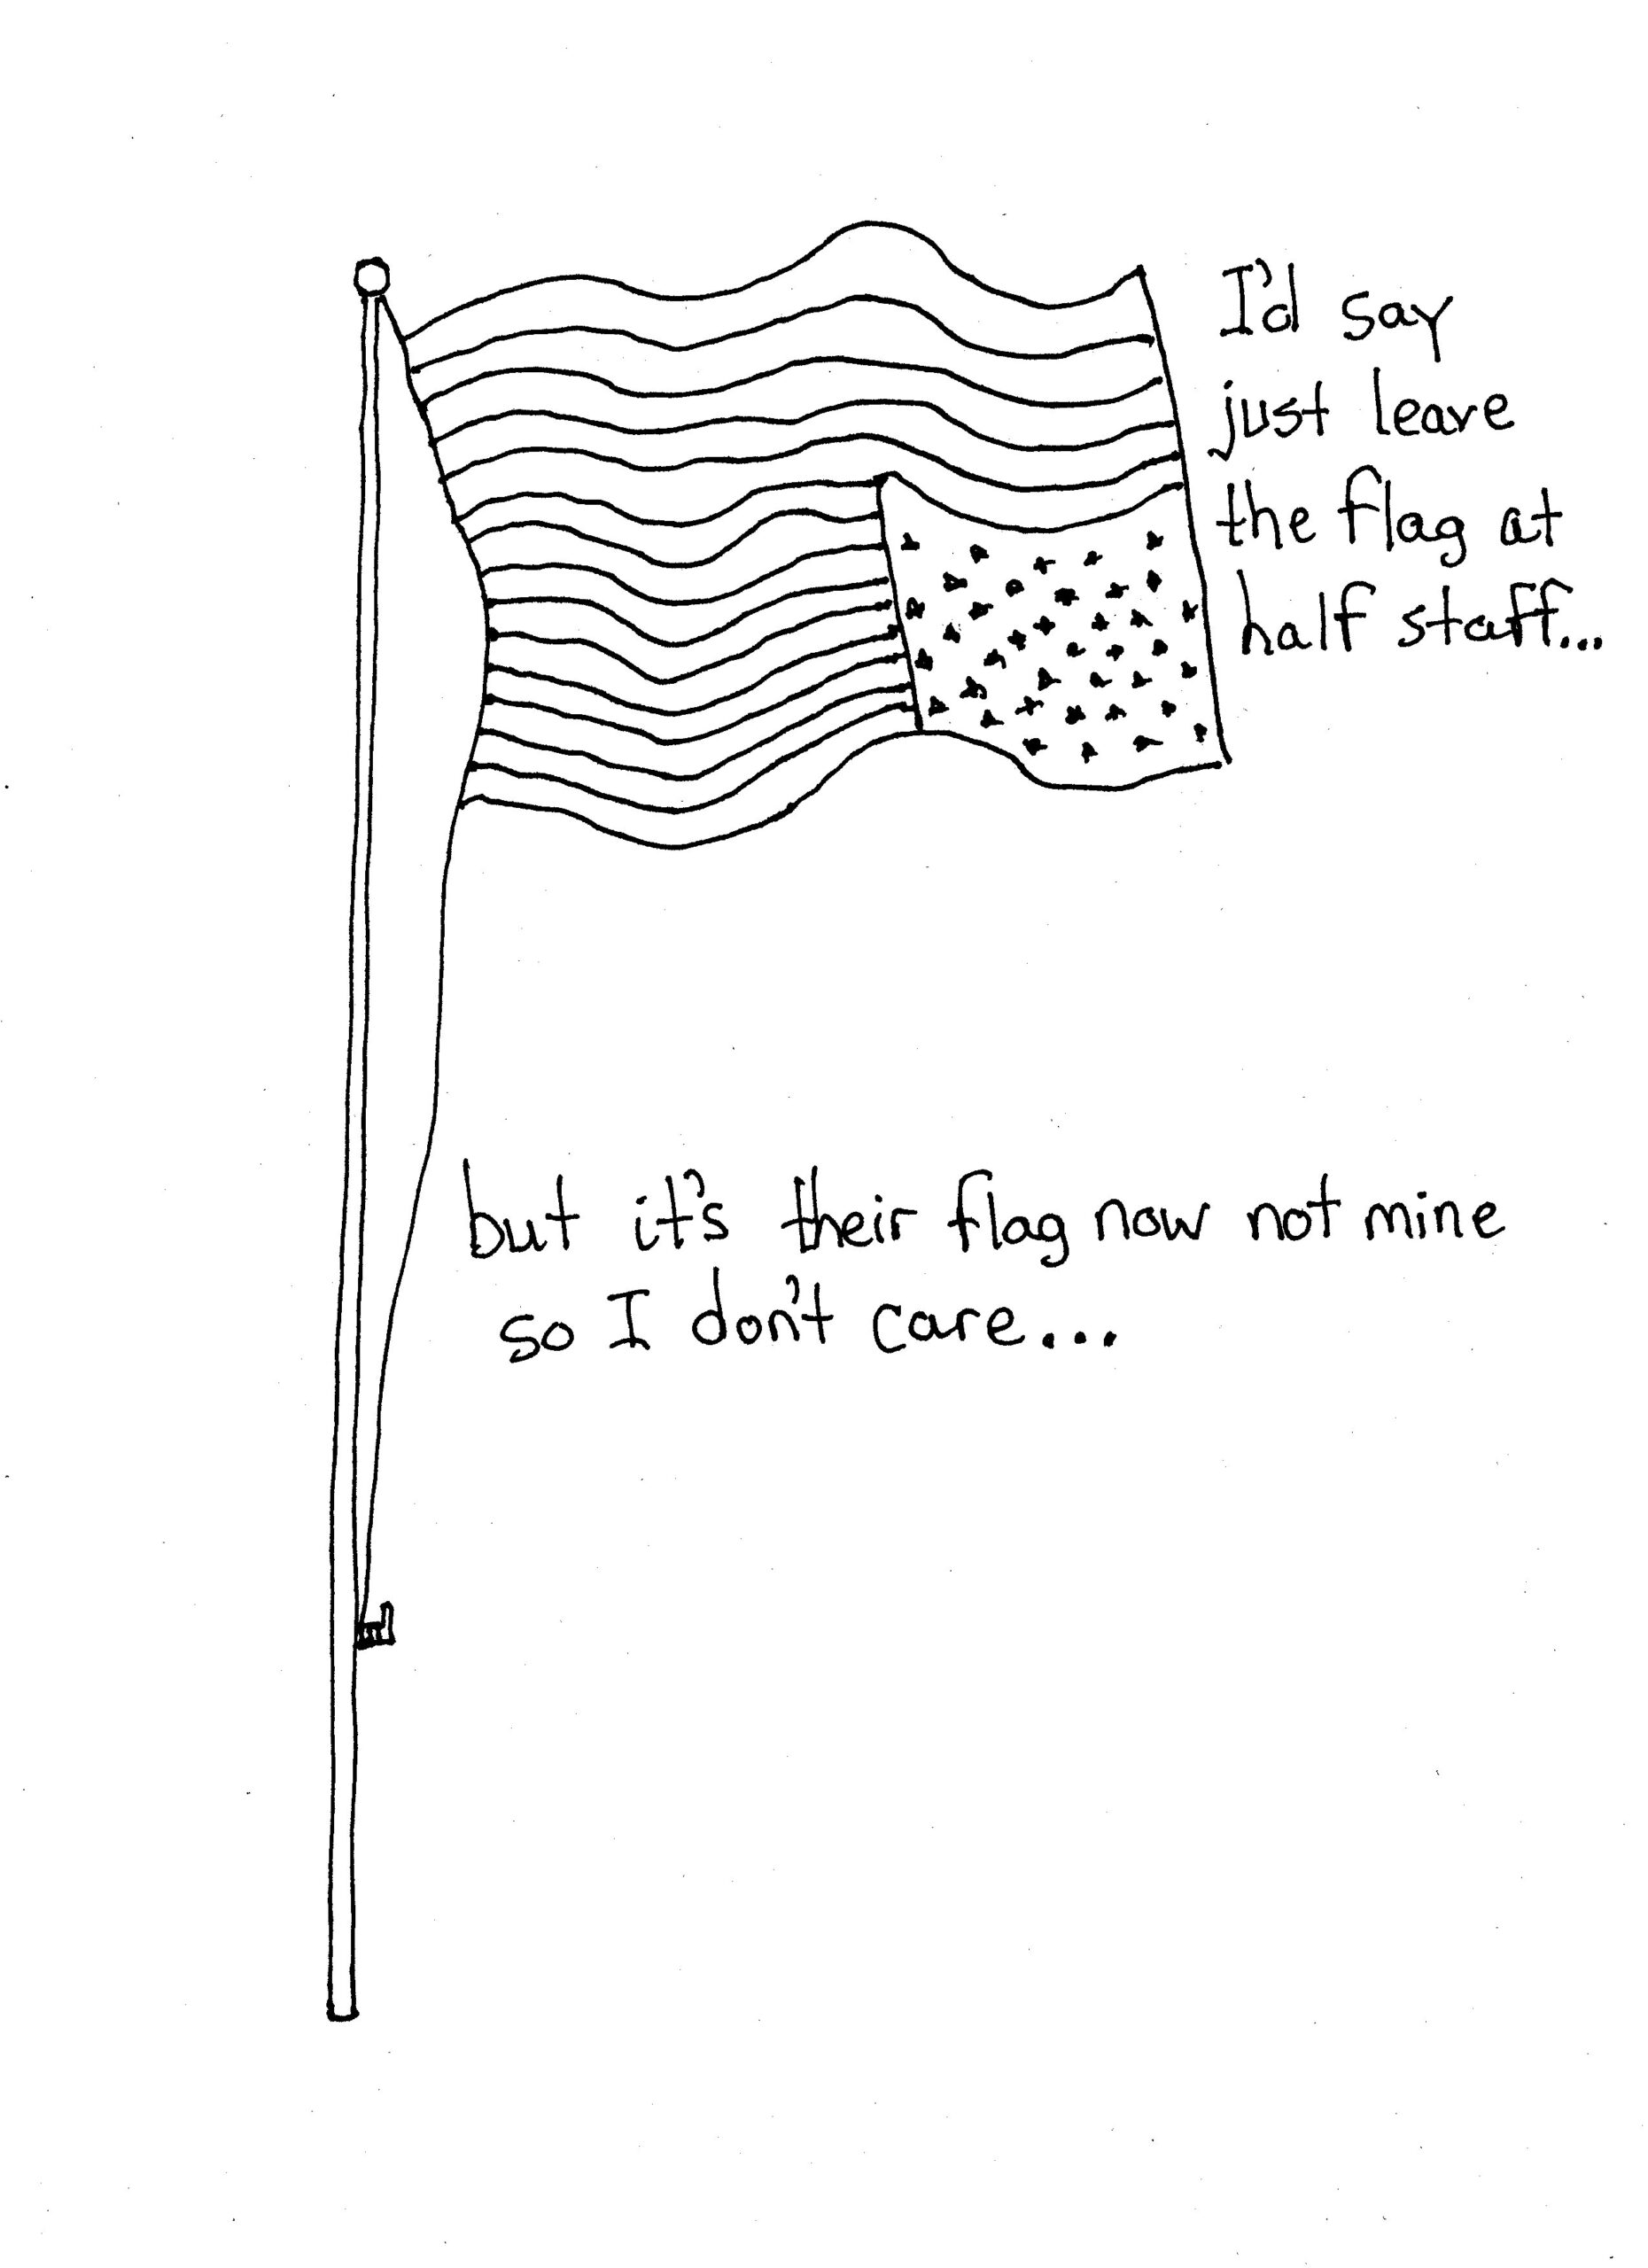 I'd say
just leave
the flag at
half staff...
but it's their flag now not mine
so I don't care...